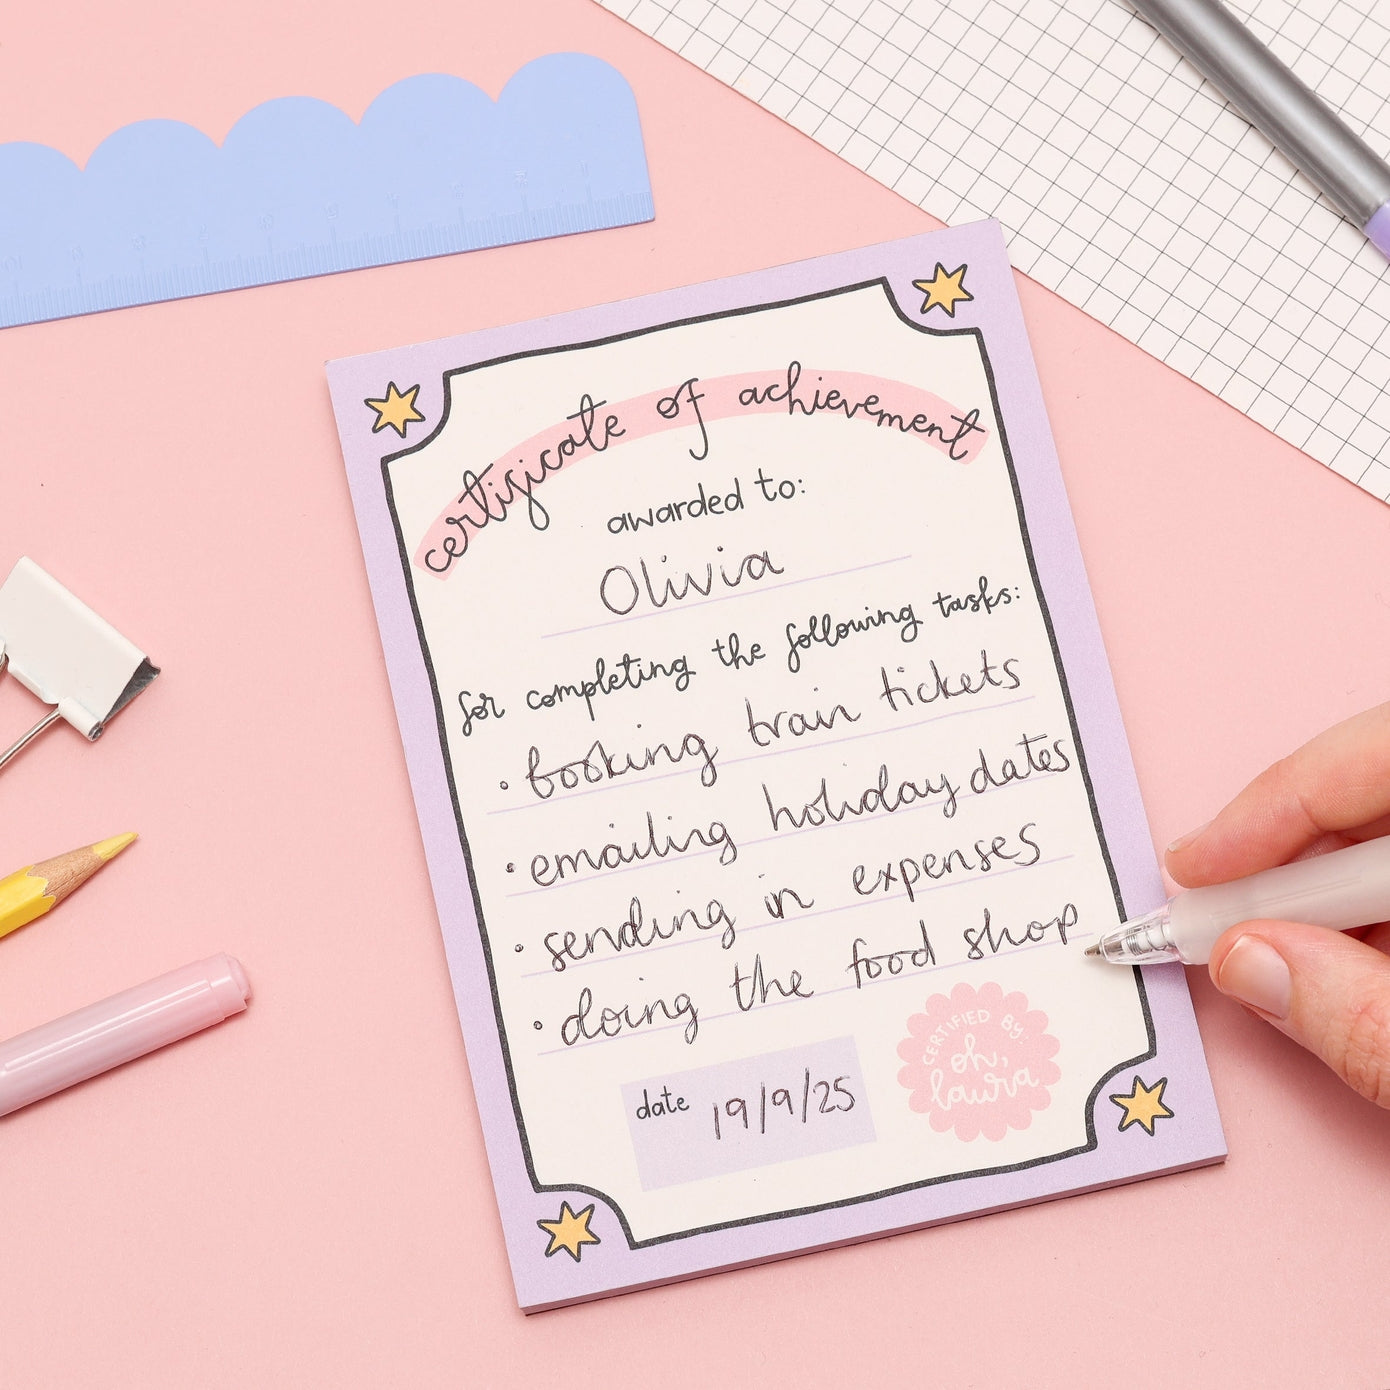 certificate of achievement
awarded to:
Olivia
for completing the following tasks:
• booking train tickets
• emailing holiday dates
• sending in expenses
• doing the food shop
date 19/9/25
CERTIFIED BY:
oh,
laura